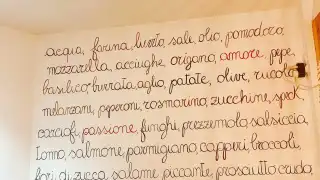 acqua, farina, lievito, sale, olio, pomodoro,
mozzarella, acciughe, origano, amore, pepe,
basilico, burrata, aglio, patate, olive, rucola,
melanzani, peperoni, rosmarino, zucchine, speck,
carciofi, passione, funghi, prezzemolo, salsiccia,
tonno, salmone, parmigiano, capperi, broccoli,
fiori di zucca, salame piccante, prosciutto crudo,